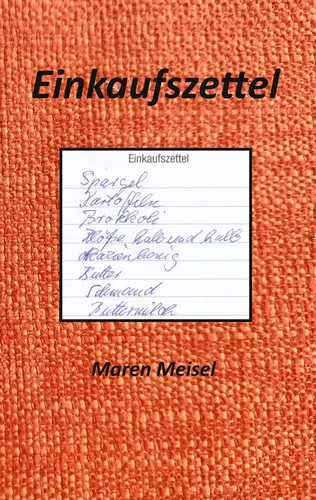 Einkaufszettel
Einkaufszettel
Spargel
Kartoffeln
Brokkoli
Klöße halb und halb
Akazienhonig
Butter
Schmand
Buttermilch
Maren Meisel